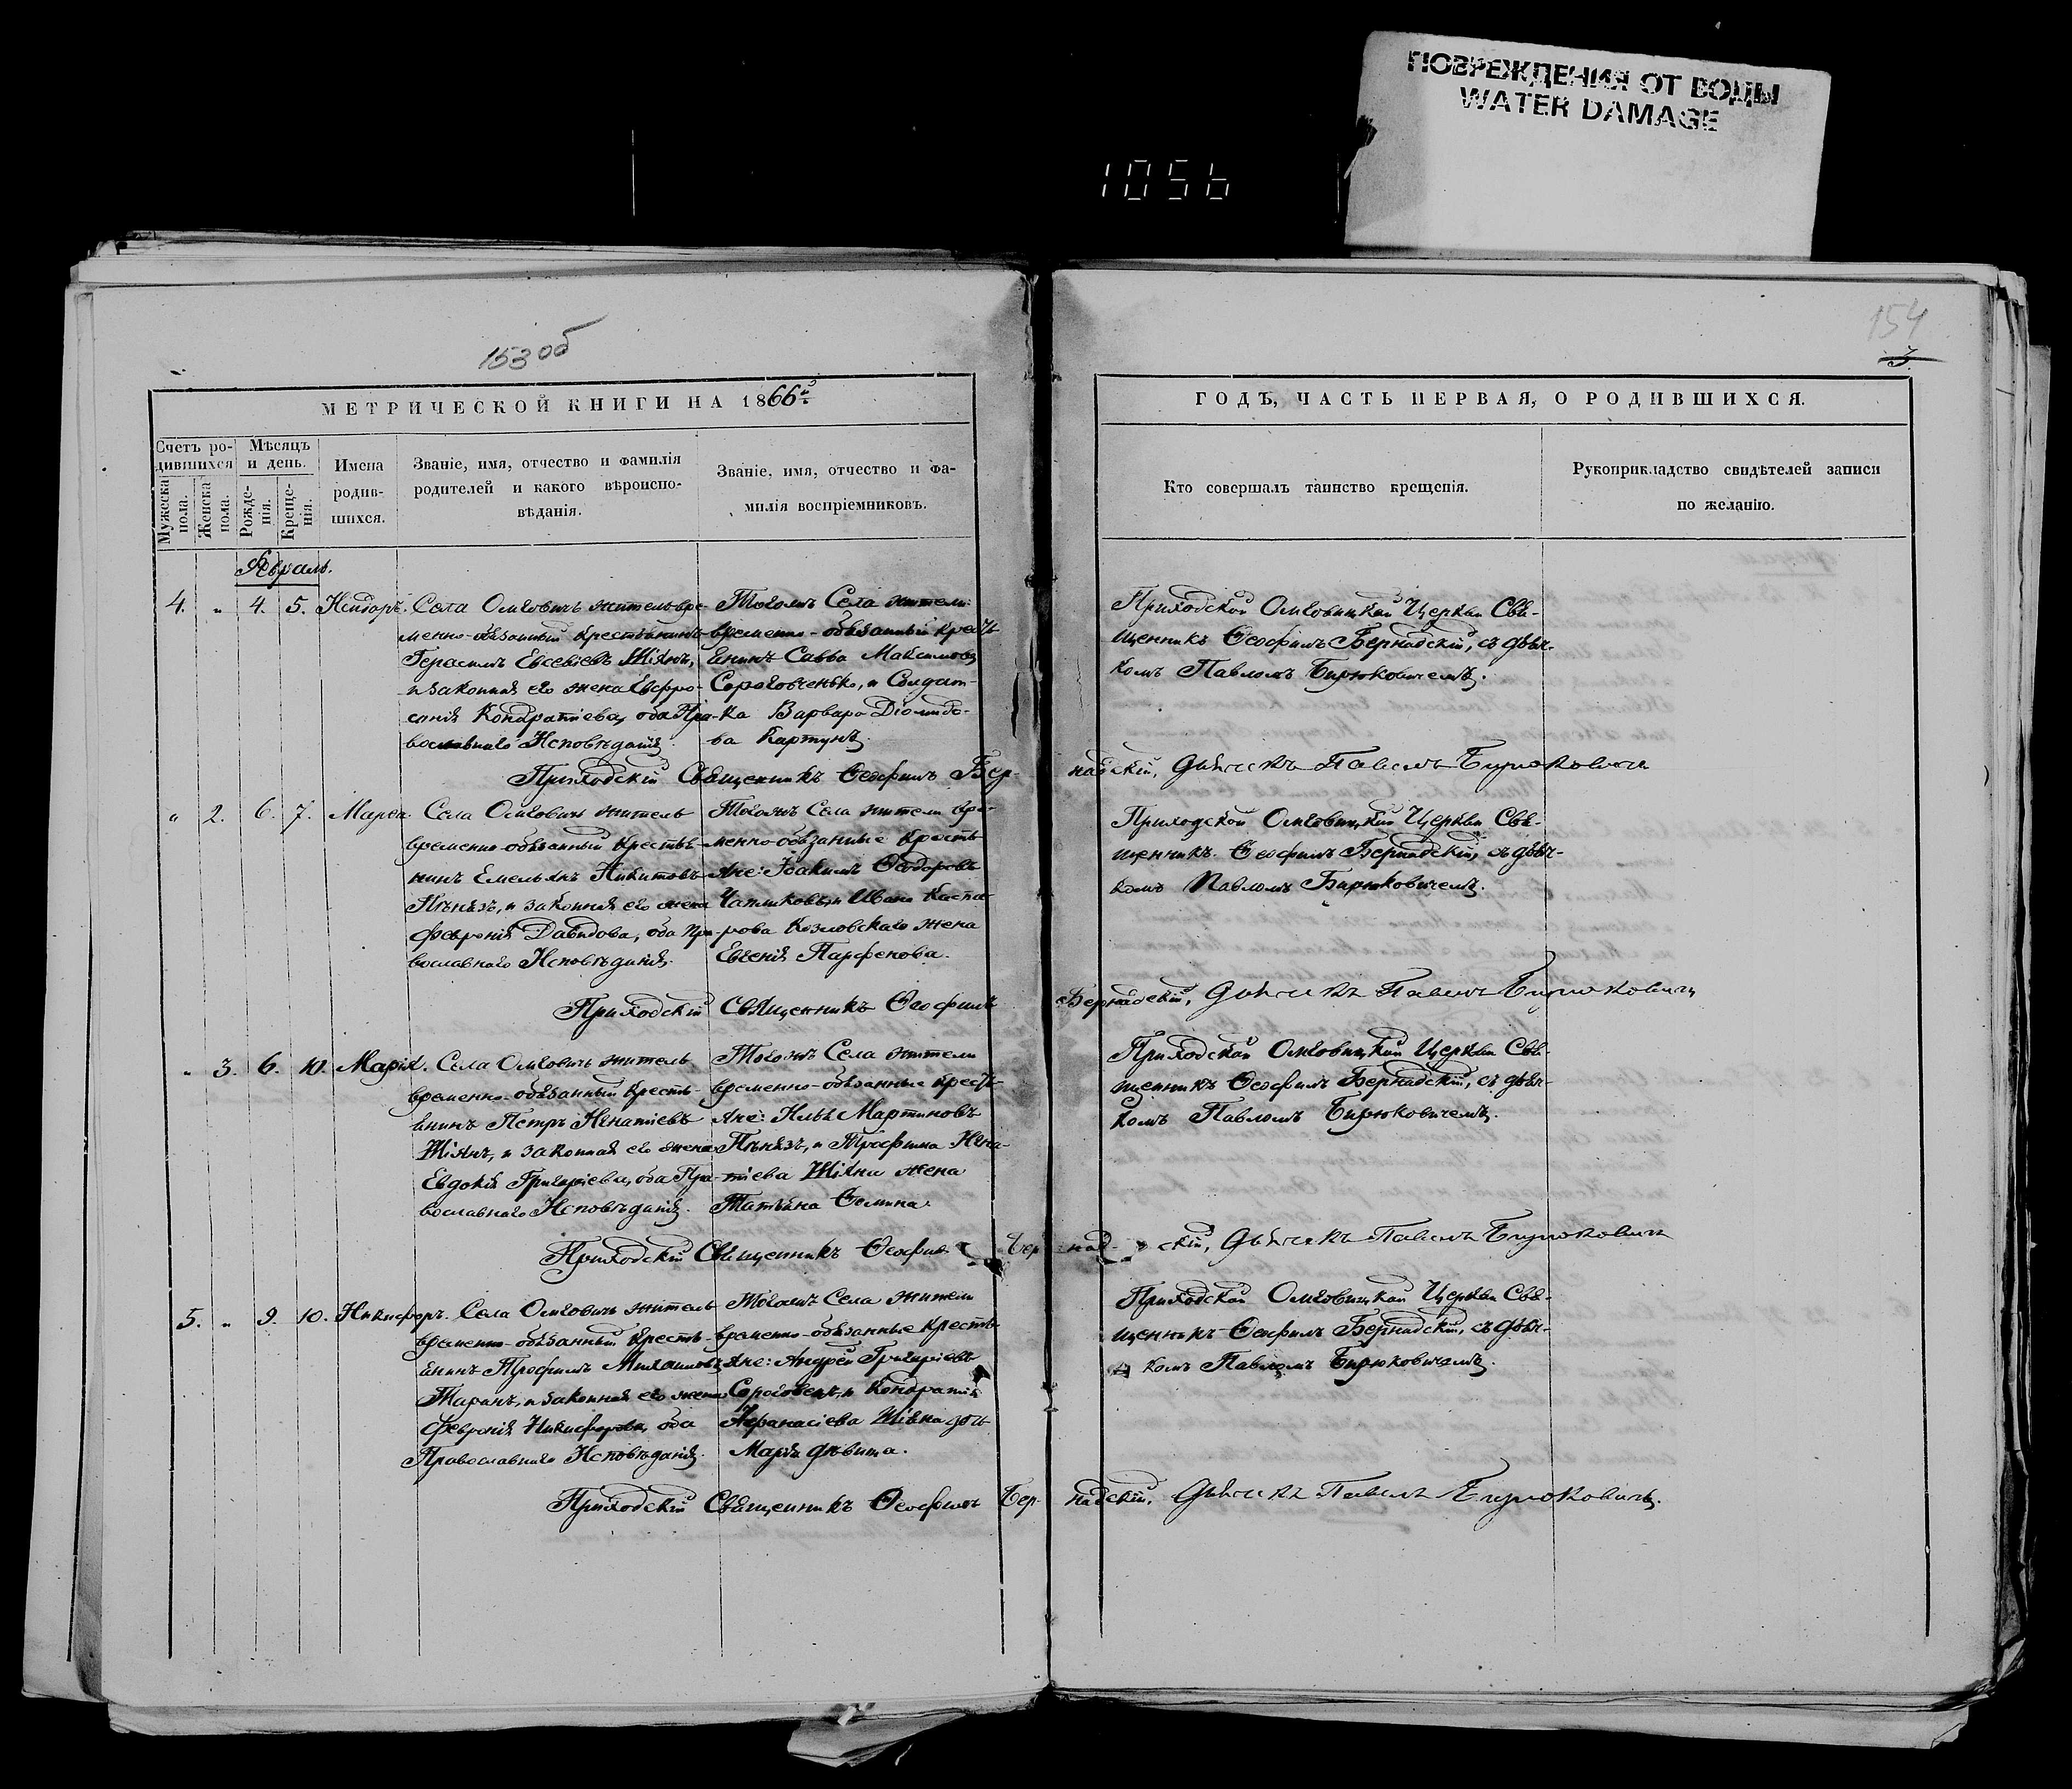 ПОВРЕЖДЕНИЯ ОТ ВОДЫ
WATER DAMAGE
1056
153 об
154
3
МЕТРИЧЕСКОЙ КНИГИ НА 1866й
ГОДЪ, ЧАСТЬ ПЕРВАЯ, О РОДИВШИХСЯ.
Счетъ родившихся
Мужеска пола.
Женска пола.
Мѣсяцъ и день.
Рожденія.
Крещенія.
Имена родившихся.
Званіе, имя, отчество и фамилія
родителей и какого вѣроиспо-
вѣданія.
Званіе, имя, отчество и фа-
милія воспріемниковъ.
Кто совершалъ таинство крещенія.
Рукоприкладство свидѣтелей записи
по желанію.
Февраль.
4. " 4. 5. Исидоръ.
Села Омговичъ житель вре-
менно-обязанный крестьянинъ
Герасимъ Евсевіевъ Шіянъ,
и законная его жена Евфро-
синія Кондратіева, оба Пра-
вославнаго Исповѣданія.
Тогожъ Села жители
временно-обязанный кресть
янинъ Савва Максимовъ
Сороговенько, и Солдат-
ка Варвара Діомидо-
ва Картунъ.
Приходской Омговицкой Церкви Свя-
щенникъ Ѳеофилъ Бернадскій, съ дьяч-
комъ Павломъ Бирюковичемъ.
Приходскій Священникъ Ѳеофилъ Бернадскій, Дьячекъ Павелъ Бирюковичъ
" 2. 6. 7. Марѳа.
Села Омговичъ житель
временно-обязанный крестья-
нинъ Емельянъ Никитовъ
Пѣнязь, и законная его жена
Февронія Давидова, оба Пра-
вославнаго Исповѣданія.
Тогожъ Села жители вре-
менно обязанные кресть
яне: Іоакимъ Ѳеодоровъ
Чапликовъ, и Ивана Каспе-
рова Козловскаго жена
Евгенія Парфенова.
Приходской Омговицкой Церкви Свя-
щенникъ Ѳеофилъ Бернадскій, съ дьяч-
комъ Павломъ Бирюковичемъ.
Приходскій Священникъ Ѳеофилъ Бернадскій, Дьячекъ Павелъ Бирюковичъ
" 3. 6. 10. Марія.
Села Омговичъ житель
временно-обязанный кресть-
янинъ Петръ Игнатіевъ
Шіянъ, и законная его жена
Евдокія Григоріева, оба Пра-
вославнаго Исповѣданія.
Тогожъ Села жители
временно-обязанные кресть
яне: Илья Мартиновъ
Пѣнязь, и Трофима Игна-
тіева Шіяна жена
Татьяна Ѳомина.
Приходской Омговицкой Церкви Свя-
щенникъ Ѳеофилъ Бернадскій, съ дьяч-
комъ Павломъ Бирюковичемъ.
Приходскій Священникъ Ѳеофилъ Бернадскій, Дьячекъ Павелъ Бирюковичъ
5. " 9. 10. Никифоръ.
Села Омговичъ житель
временно-обязанный кресть-
янинъ Трофимъ Михаиловъ
Таранъ, и законная его жена
Февронія Никифорова, оба
Православнаго Исповѣданія.
Тогожъ Села жители
временно-обязанные кресть
яне: Андрей Григоріевъ
Сороговецъ, и Кондратія
Афанасіева Шіяна дочь
Марія дѣвица.
Приходской Омговицкой Церкви Свя-
щенникъ Ѳеофилъ Бернадскій, съ дьяч-
комъ Павломъ Бирюковичемъ.
Приходскій Священникъ Ѳеофилъ Бернадскій, Дьячекъ Павелъ Бирюковичъ.